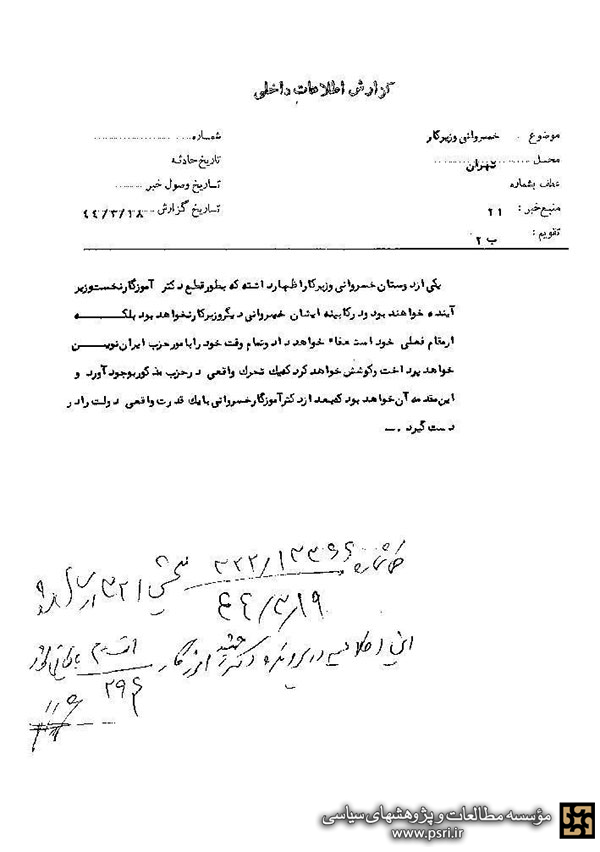 گزارش اطلاعات داخلی
موضوع : خسروانی وزیرکار
شماره
محل تهران
تاریخ حادثه
عطف بشماره
تاریخ وصول خبر
منبع خبر : ۲۱
تاریخ گزارش ۴۴/۳/۱۸
تقویم : ب ۲
یکی از دوستان خسروانی وزیر کار اظهار داشته که بطور قطع دکتر آموزگار نخست وزیر
آینده خواهند بود و در کابینه ایشان خسروانی دیگر وزیر کار نخواهد بود بلکه
از مقام فعلی خود استعفاء خواهد داد و تمام وقت خود را بامور حزب ایران نوین
خواهد پرداخت و کوشش خواهد کرد که یک تحرک واقعی در حزب مذکور بوجود آورد و
این مقدمه آن خواهد بود که بعد از دکتر آموزگار خسروانی با یک قدرت واقعی دولت را در
دست گیرد .
شماره ۳۲۲/۱۳۴۶۶ بخش ۳۲۱ ارسال
۴۴/۳/۱۹
این اطلاعیه در پرونده دکتر جمشید آموزگار
۲۹۶
مؤسسه مطالعات و پژوهشهای سیاسی
www.psri.ir